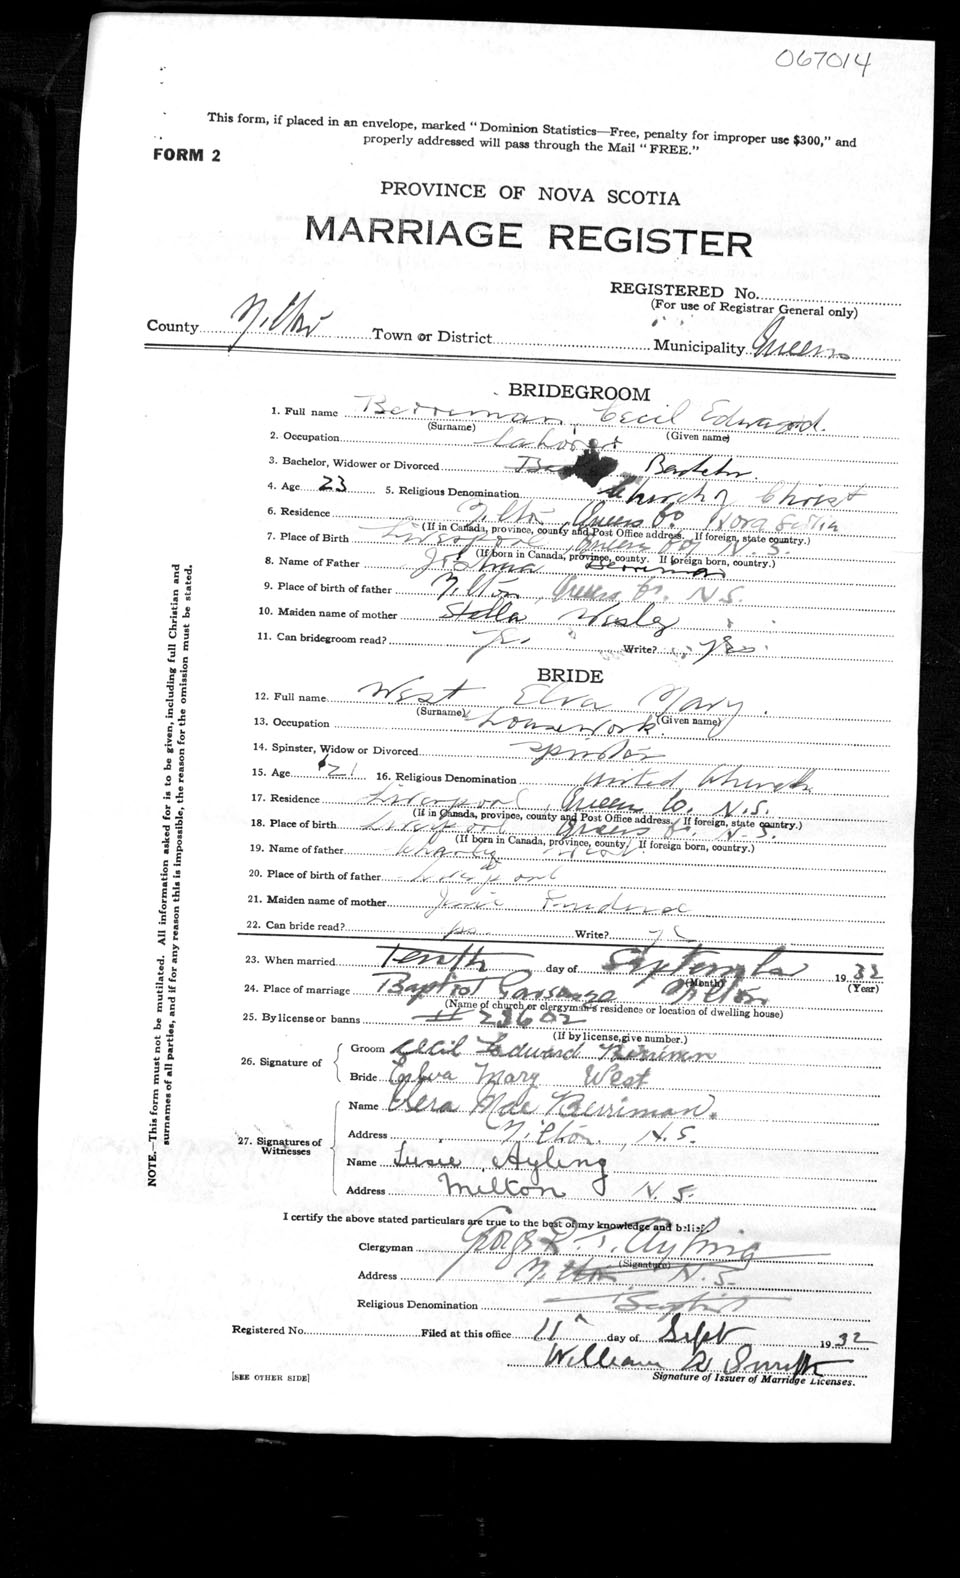 067014
This form, if placed in an envelope, marked "Dominion Statistics—Free, penalty for improper use $300," and
properly addressed will pass through the Mail "FREE."
FORM 2
PROVINCE OF NOVA SCOTIA
MARRIAGE REGISTER
REGISTERED No.
(For use of Registrar General only)
County Milton Town or District Municipality Queens
BRIDEGROOM
1. Full name Berriman, Cecil Edward.
(Surname) (Given name)
2. Occupation Laborer
3. Bachelor, Widower or Divorced Bachelor.
4. Age 23 5. Religious Denomination Church of Christ
6. Residence Milton, Queens Co Nova Scotia
(If in Canada, province, county and Post Office address. If foreign, state country.)
7. Place of Birth Liverpool, Queens Co, N.S.
(If born in Canada, province, county. If foreign born, country.)
8. Name of Father Joshua Berriman
9. Place of birth of father Milton, Queens Co. N.S.
10. Maiden name of mother Stella
11. Can bridegroom read? yes Write? yes
BRIDE
12. Full name West Elva Mary.
(Surname) (Given name)
13. Occupation housework.
14. Spinster, Widow or Divorced spinster
15. Age 21 16. Religious Denomination United Church
17. Residence Liverpool, Queens Co. N.S.
(If in Canada, province, county and Post Office address. If foreign, state country.)
18. Place of birth Liverpool Queens Co. N.S.
(If born in Canada, province, county. If foreign born, country.)
19. Name of father Charley West
20. Place of birth of father Liverpool
21. Maiden name of mother
22. Can bride read? yes Write?
23. When married Tenth day of September 1932
(Month) (Year)
24. Place of marriage Baptist Parsonage Milton
(Name of church or clergyman's residence or location of dwelling house)
25. By license or banns 23602
(If by license, give number.)
26. Signature of
Groom Cecil Edward Berriman
Bride Elva Mary West
27. Signatures of Witnesses
Name Vera Mae Berriman.
Address Milton, N.S.
Name Susie Ayling
Address Milton N.S.
I certify the above stated particulars are true to the best of my knowledge and belief.
Clergyman Ayling
(Signature)
Address Milton N.S.
Religious Denomination Baptist
Registered No. Filed at this office 11 day of Sept 1932
William Smith
Signature of Issuer of Marriage Licenses.
[SEE OTHER SIDE]
NOTE.—This form must not be mutilated. All information asked for is to be given, including full Christian and
surnames of all parties, and if for any reason this is impossible, the reason for the omission must be stated.